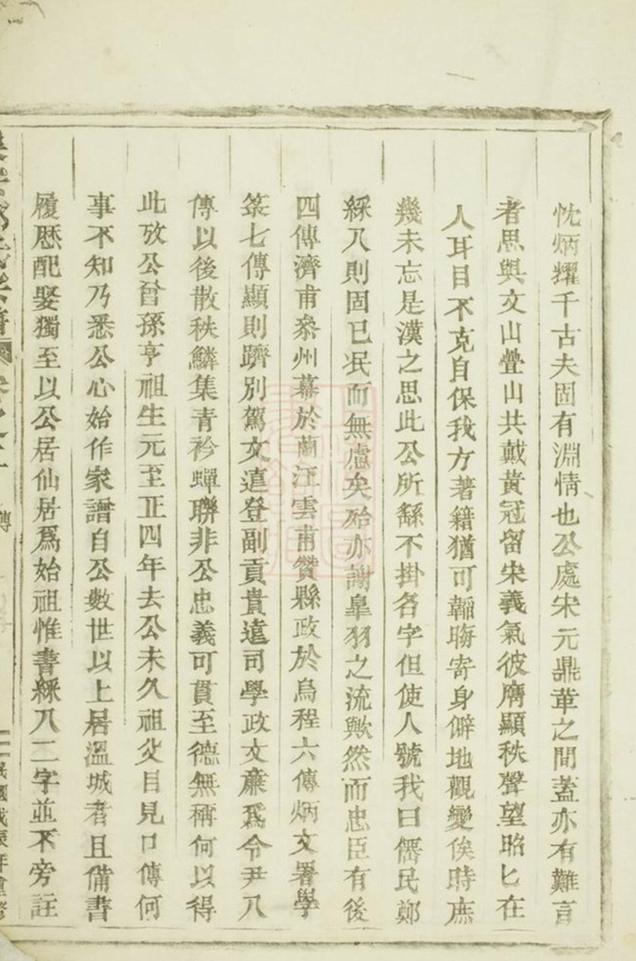 忱炳耀千古夫固有淵情也公處宋元鼎革之間蓋亦有難言
者思與文山疊山共戴黃冠留宋義氣彼膺顯秩聲望昭匕在
人耳目不克自保我方著籍猶可韜晦寄身僻地觀變俟時庶
幾未忘是漢之思此公所繇不掛名字但使人號我曰儒民鄭
綵八則固已泯而無慮矣殆亦謝臯羽之流歟然而忠臣有後
四傳濟甫叅州幕於蘭江雲甫贊縣政於烏程六傳炳文署學
篆七傳顯則躋別駕文遠登副貢貴遠司學政文廉爲令尹八
傳以後散秩鱗集青衿蟬聯非公忠義可貫至德無稱何以得
此攷公曾孫亨祖生元至正四年去公未久祖父目見口傳何
事不知乃悉公心始作家譜自公數世以上居溫城者且備書
履歷配娶獨至以公居仙居爲始祖惟書綵八二字並不旁註
傳
民國戊辰年重修